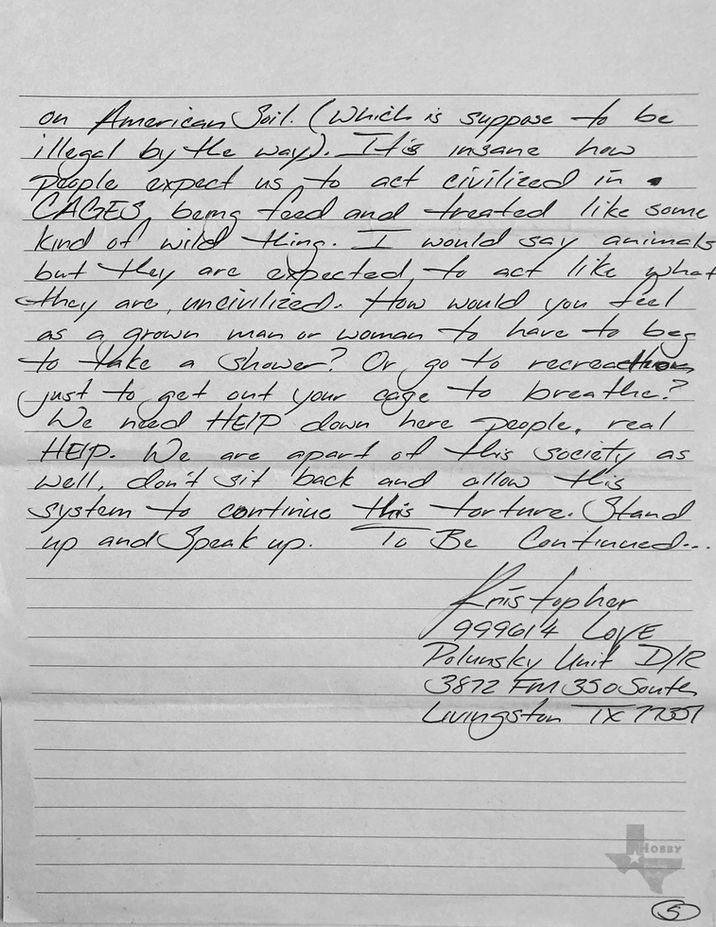 on American Soil. (Which is suppose to be
illegal by the way). It is insane how
people expect us, to act civilized in
CAGES, being feed and treated like some
kind of wild thing. I would say animals
but they are expected to act like what
they are, uncivilized. How would you feel
as a grown man or woman to have to beg
to take a shower? Or go to recreaction
just to get out your cage to breathe?
We need HELP down here people, real
HELP. We are apart of this society as
well, don't sit back and allow this
system to continue this torture. Stand
up and Speak up. To Be Continued...
Kristopher
999614 Love
Polunsky Unit D/R
3872 FM 350 South
Livingston TX 77351
HOBBY
5